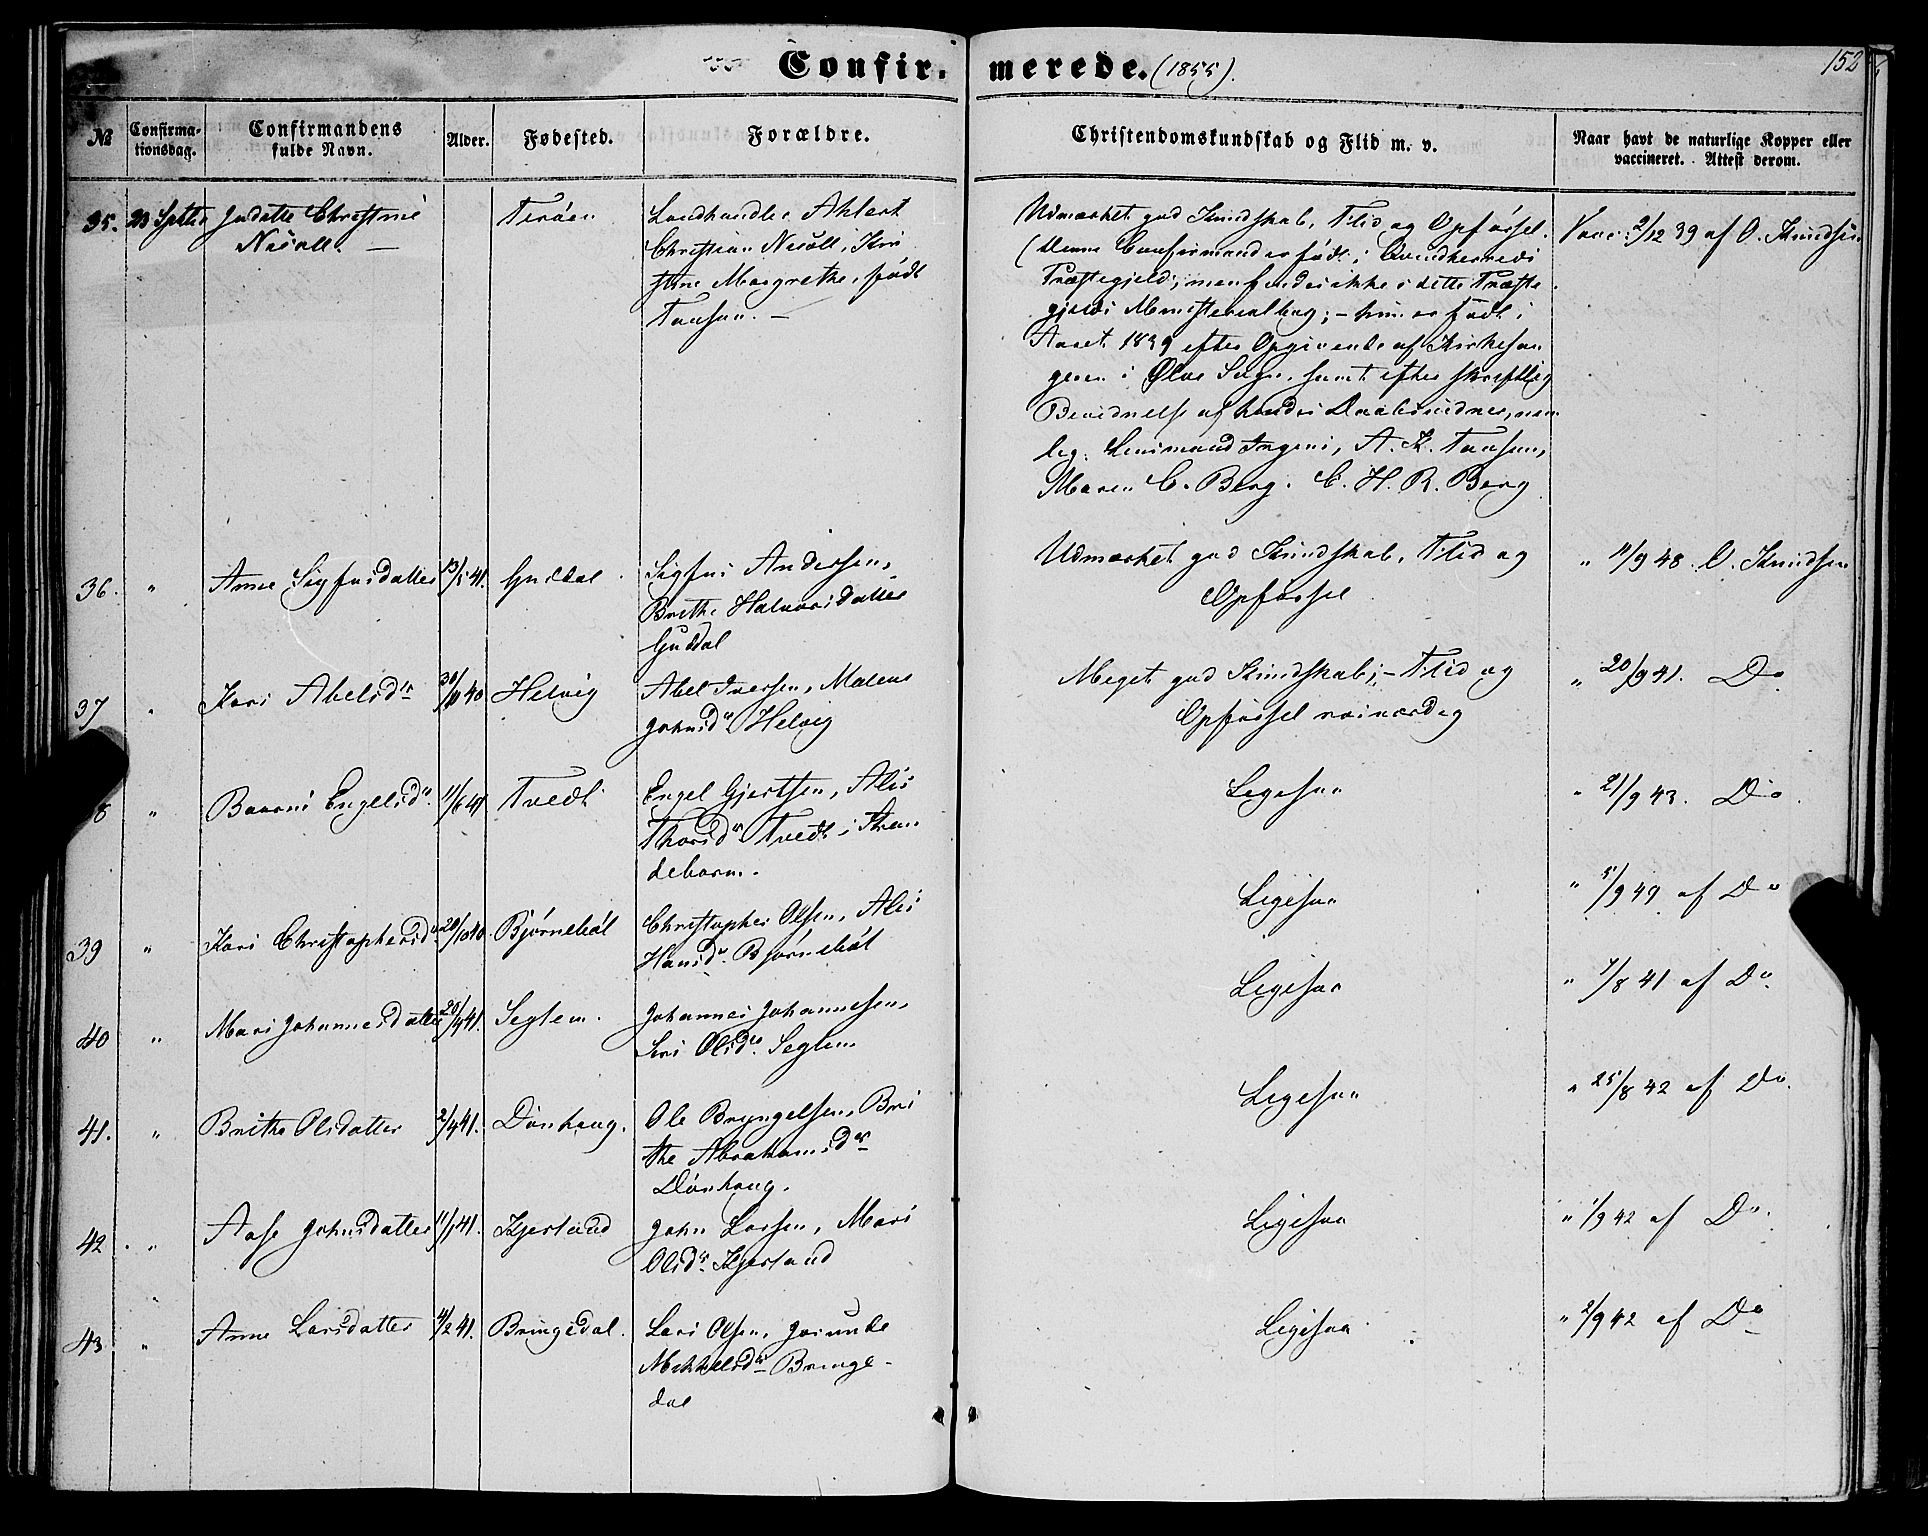 Confirmerede. (1855).
152
№
Confirmationsdag.
Confirmandens fulde Navn.
Alder.
Fødested.
Forældre.
Christendomskundskab og Flid m. v.
Naar havt de naturlige Kopper eller vaccineret. Attest derom.
35. 23 Septbr
Christine
Terøen
Landhandler Ahlert
Christian
Margrethe, født
Udmærket god Kundskab, Flid og Opførsel.
(Denne Confirmand er født i Qvindherreds
Præstegjeld; men findes ikke i dette Præste-
gjelds Ministerialbog; – hun er født i
Aaret 1839 efter Opgivende af Kirkesan-
geren i Ølve Sogn, samt efter skriftlig
Bevidnelse af hendes Daabsvidner, nem-
lig: Lensmand
Maren C. Berg. C. H. R. Berg
Vacc: 2/12 39 af O. Knudsen
36. " Anne Sigfusdatter 13/5 41. Guddal
Sigfus Andersen,
Brithe Halvorsdatter
Guddal
Udmærket god Kundskab, Flid og
Opførsel
" 11/9 48. O. Knudsen
37 " Kari Abelsdr 40 Helvig
Abel Iversen, Malene
Johnsdr Helvig
Meget god Kundskab; – Flid og
Opførsel roiværdig
" 20/9 41. Do
8 " Engelsdr 11/6 41 Tvedt
Engel Gjertsen, Alis
Thorsdr Tvedt i Stran-
debarm.
Ligesaa
" 21/9 43. Do.
39 " Kari Christophersdr 20/10 40. Bjørnebøl
Christopher Olsen, Alis
Hansdr Bjørnebøl
Ligesaa
" 5/9 49 af Do
40 " Mari Johannesdatter 41. Seglem.
Johannes Johannesen,
Siri Olsdr. Seglem
Ligesaa
" 7/8 41 af Do
41. " Brithe Olsdatter 2/4 41. Dønhaug.
Ole Bryngelsen, Bri-
the Abrahamsdr
Dønhaug.
Ligesaa
" 25/8 42 af Do.
42. " Aase Johnsdatter 11/1 41. Kjerland
John Larsen, Mari
Olsdr Kjerland
Ligesaa
" 1/9 42 af Do.
43 " Anne Larsdatter 4/2 41. Bringedal.
Lars Olsen, Jorunde
Mikkelsdr Bringe-
dal
Ligesaa
" 2/9 42 af Do